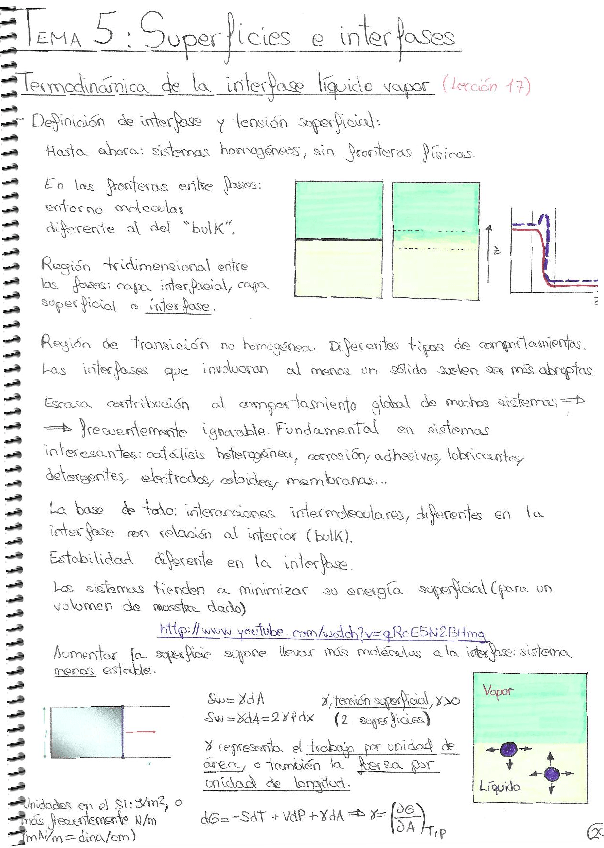 TEMA 5: Superficies e interfases
Termodinámica de la interfase líquido vapor (Lección 17)
- Definición de interfase y tensión superficial:
Hasta ahora: sistemas homogéneos, sin fronteras físicas.
En las fronteras entre fases:
entorno moléculas
diferente al del "bulk".
z
Región tridimensional entre
las fases: capa interfacial, capa
superficial o interfase.
Región de transición no homogénea. Diferentes tipos de comportamientos.
Las interfases que involucran al menos un sólido suelen ser más abruptas
Escasa contribución al comportamiento global de muchos sistemas ⇒
⇒ frecuentemente ignorable. Fundamental en sistemas
interesantes: catálisis heterogénea, corrosión, adhesivos, lubricantes,
detergentes, electrodos, coloides, membranas...
La base de todo: interacciones intermoleculares, diferentes en la
interfase con relación al interior (bulk).
Estabilidad diferente en la interfase.
Los sistemas tienden a minimizar su energía superficial (para un
volumen de muestra dado)
Aumentar la superficie supone llevar más moléculas a la interfase: sistema
menos estable.
δw = γdA γ, tensión superficial, γ>0
δw = γdA = 2γℓdx (2 superficies)
γ representa el trabajo por unidad de
área, o también la fuerza por
unidad de longitud.
Vapor
Líquido
Unidades en el SI: J/m², o
más frecuentemente N/m
(mN/m = dina/cm)
dG = -SdT + VdP + γdA ⇒ γ = (∂G/∂A)T,P